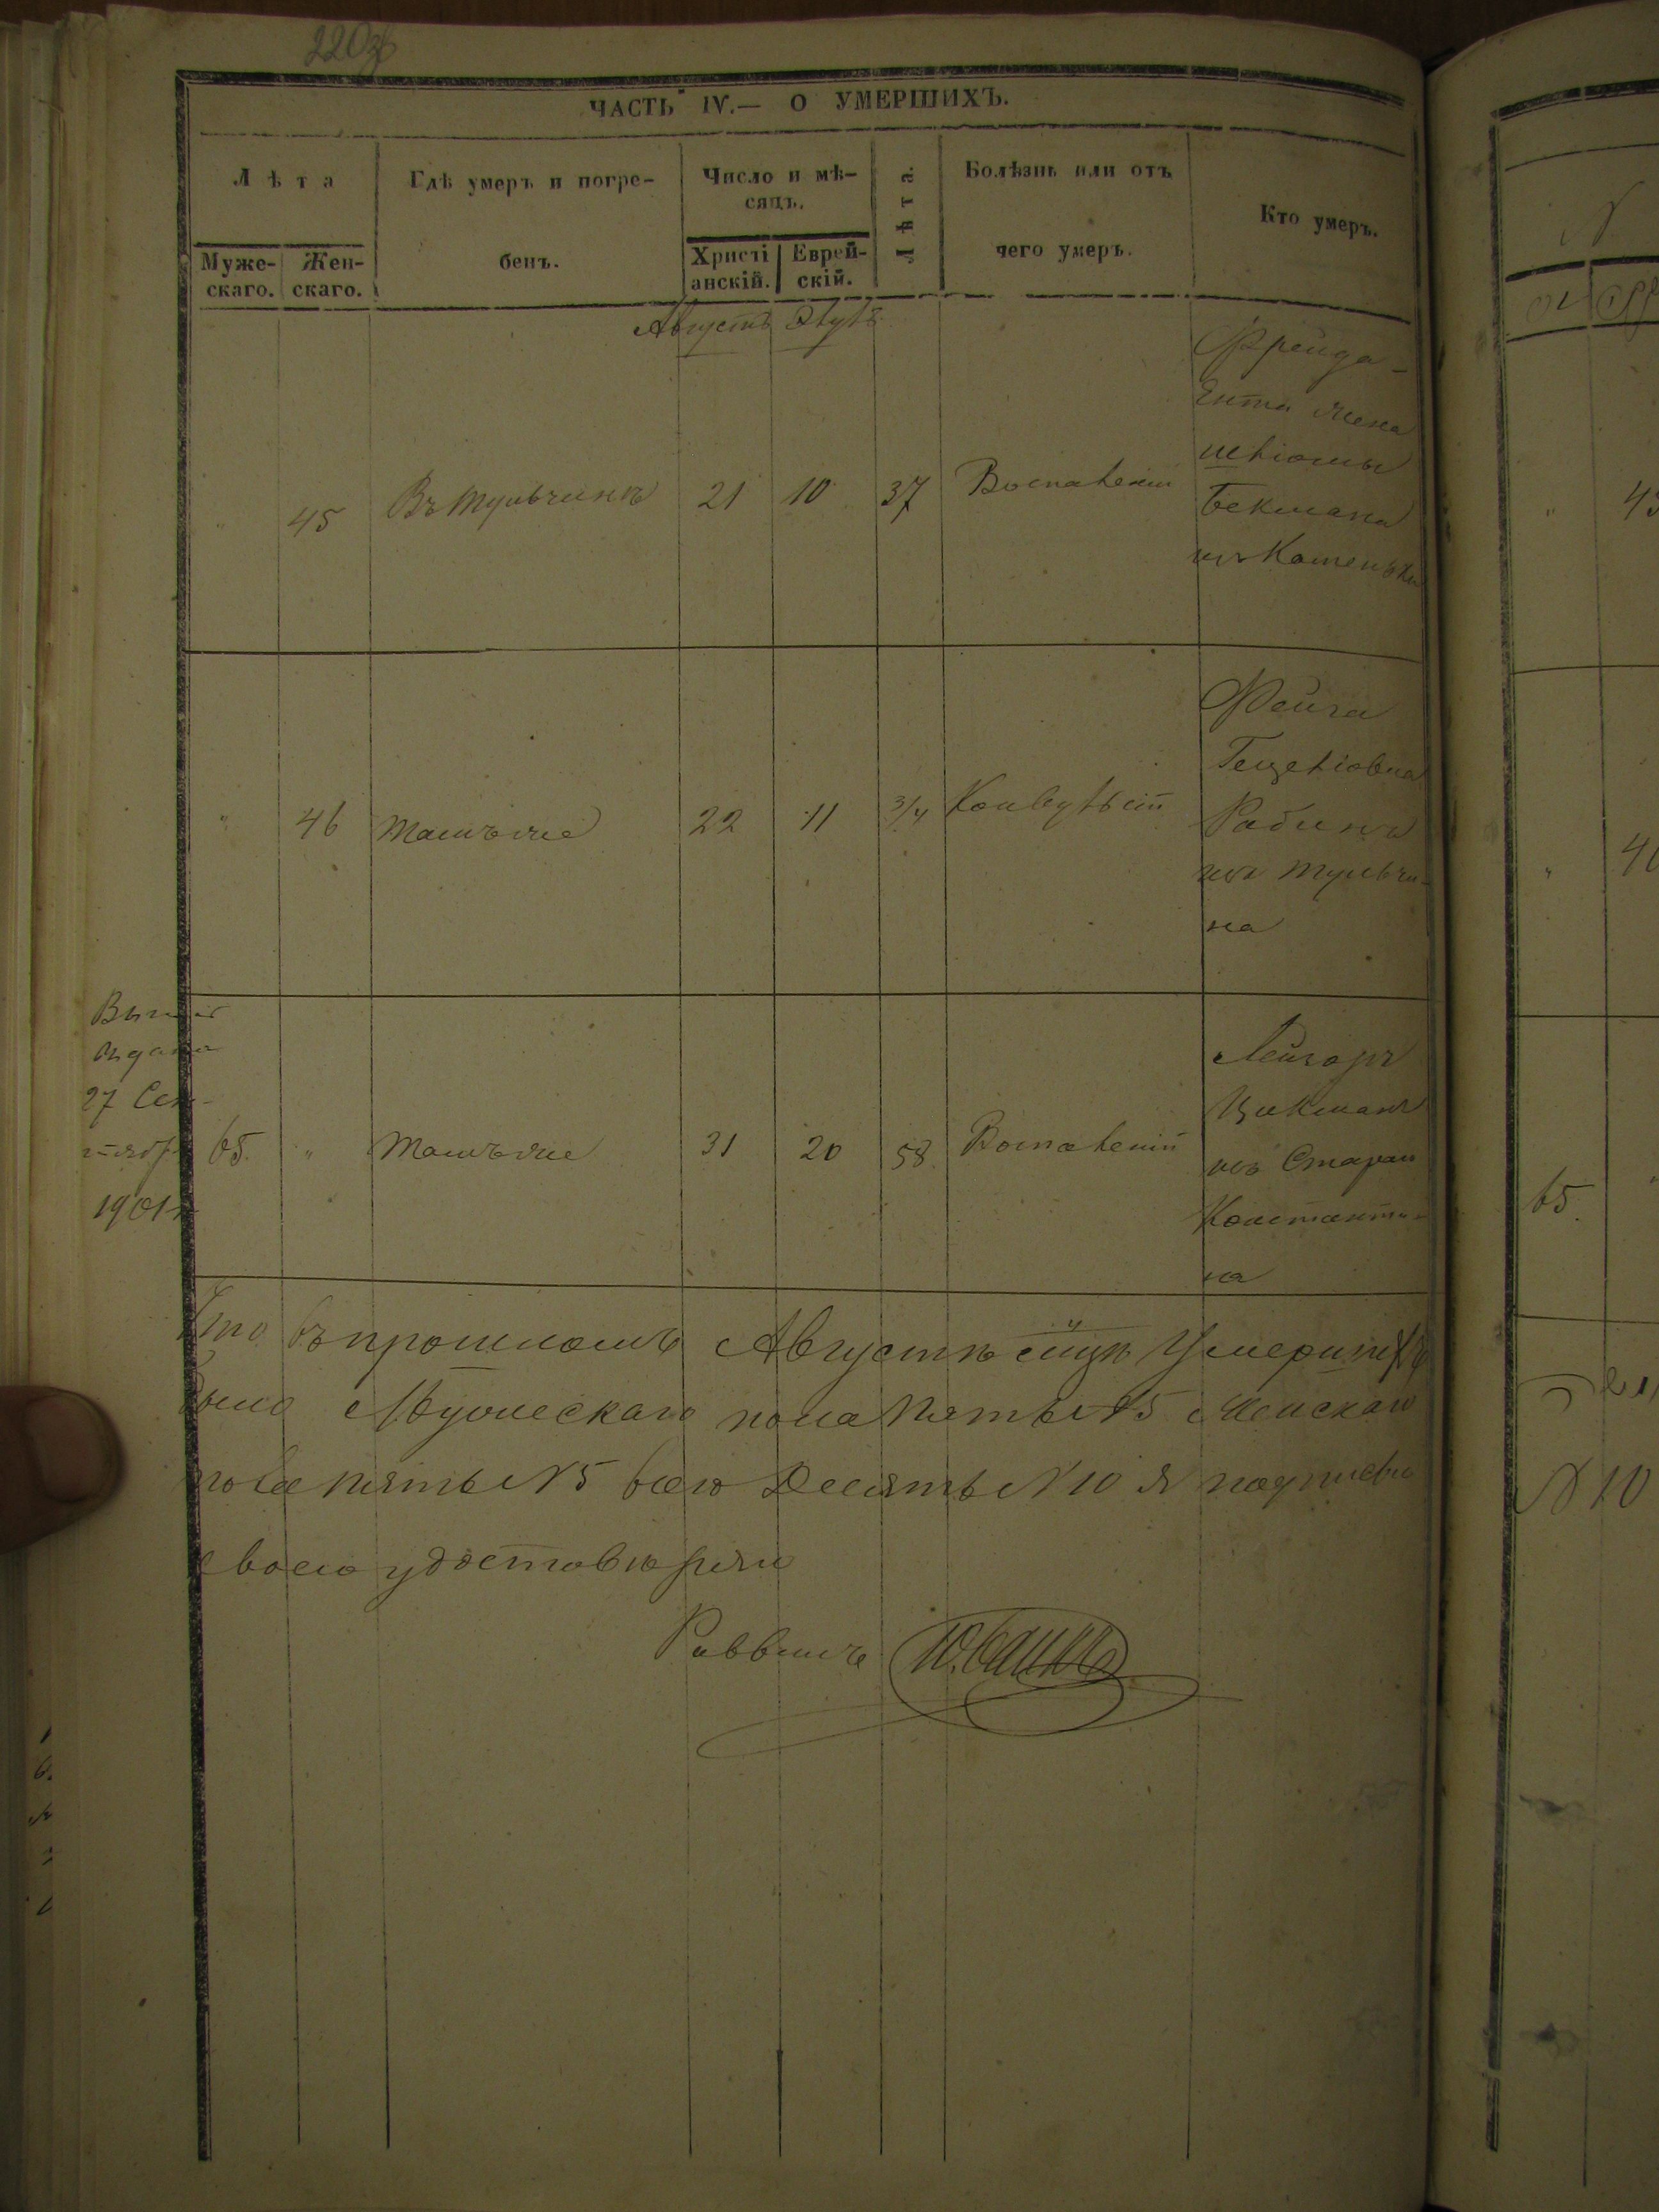 220
ЧАСТЬ IV.— О УМЕРШИХЪ.
Лѣта
Муже-
скаго.
Жен-
скаго.
Гдѣ умеръ и погре-
бенъ.
Число и мѣ-
сяцъ.
Христі
анскій.
Еврей-
скій.
Лѣта.
Болѣзнь или отъ
чего умеръ.
Кто умеръ.
Августъ Элулъ
" 45 Въ Тульчинѣ 21 10 37 Воспаленій
Фрейда
Ента Жена
Бекмана
изъ Каменки
" 46 Тамъ же 22 11 3/4 Конвульсій
Фейга
Рабина
изъ Тульчи-
на
27 Сен-
1901
65. " Тамъ же 31 20 58. Воспаленій
Лейзоръ
Цикманъ
изъ Старой
Константи-
на
Что въ прошломъ Августѣ мцѣ Умершихъ
было Мужескаго пола Пять №5 Женскаго
пола пять №5 всего Десять №10 я подписью
своею удостовѣряю
Раввинъ
65.
№10